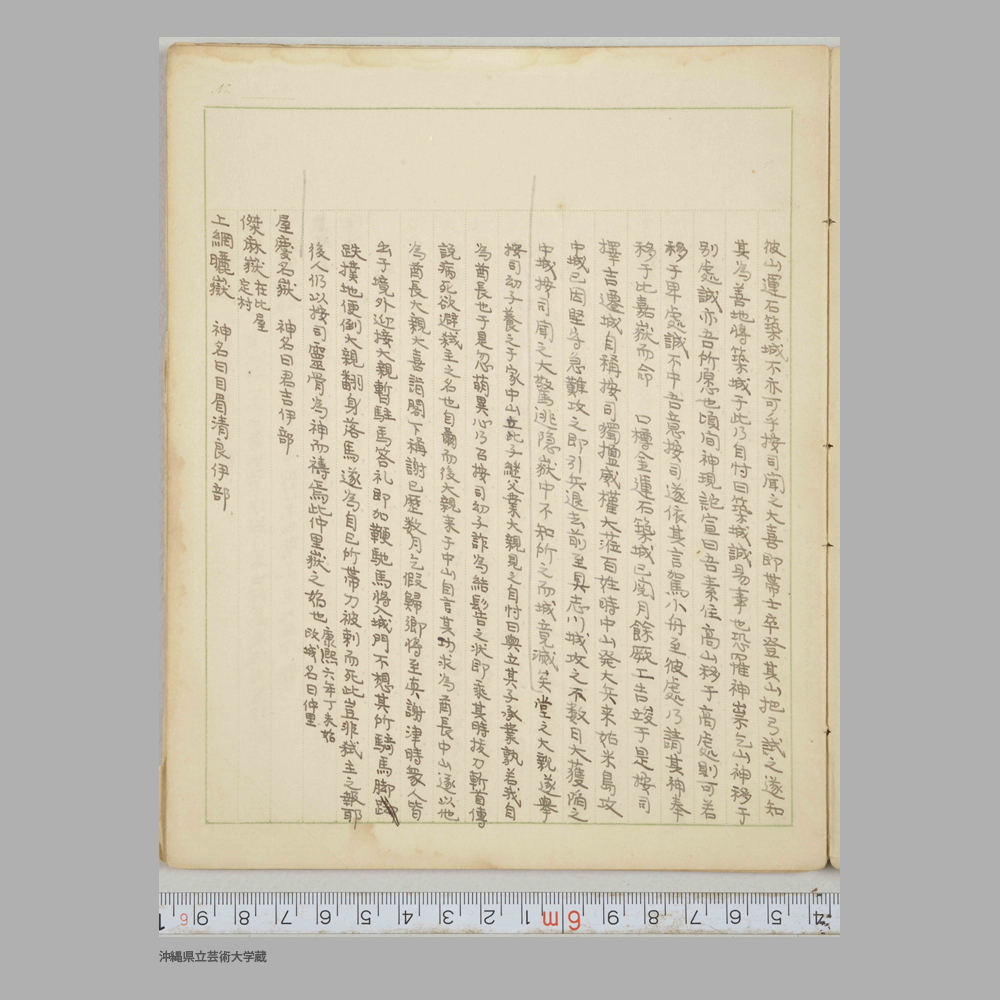 彼山運石築城不亦可乎按司聞之大喜即帯士卒登其山把弓試之遂知
其為善地将築城于此乃自忖曰築城誠易事也恐罹神祟乞山神移于
別處誠亦吾所愿也頃間神現託宣曰吾素住高山移于高處則可若
移于卑處誠不中吾意按司遂依其言駕小舟至彼處乃請其神奉
移于比嘉嶽而命 運石築城已閲月餘厥工告竣于是按司
擇吉遷城自稱按司獨擅威權大蒞百姓時中山発大兵来始米島攻
中城已因堅牢急難攻之即引兵退去前至具志川城攻之不数日大獲陥之
中城按司聞之大驚逃隠嶽中不知所之而城竟滅矣堂之大親遂挙
按司幼子養之于家中山立此子継父業大親見之自忖曰與立其子承業孰若我自
為酋長也于是忽萌異心乃召按司幼子詐為結髻告之状即乘其時抜刀斬首傳
説病死欲避弑主之名也自爾而後大親来于中山自言其功求為酋長中山遂以他
為酋長大親大喜詣闕下稱謝已歴数月乞假歸郷将至真謝津時衆人皆
出于境外迎接大親暫駐馬答礼即加鞭馳馬将入城門不想其所騎馬脚
跌撲地便倒大親翻身落馬遂為自己所帯刀被刺而死此豈非弑主之報耶
後人仍以按司靈骨為神而祷焉此仲里嶽之始也 康熙六年丁未始
改城名曰仲里
屋慶名嶽 神名曰君吉伊部
傑麻嶽 在比屋
定村
上網曬嶽 神名曰目眉清良伊部
沖縄県立芸術大学蔵